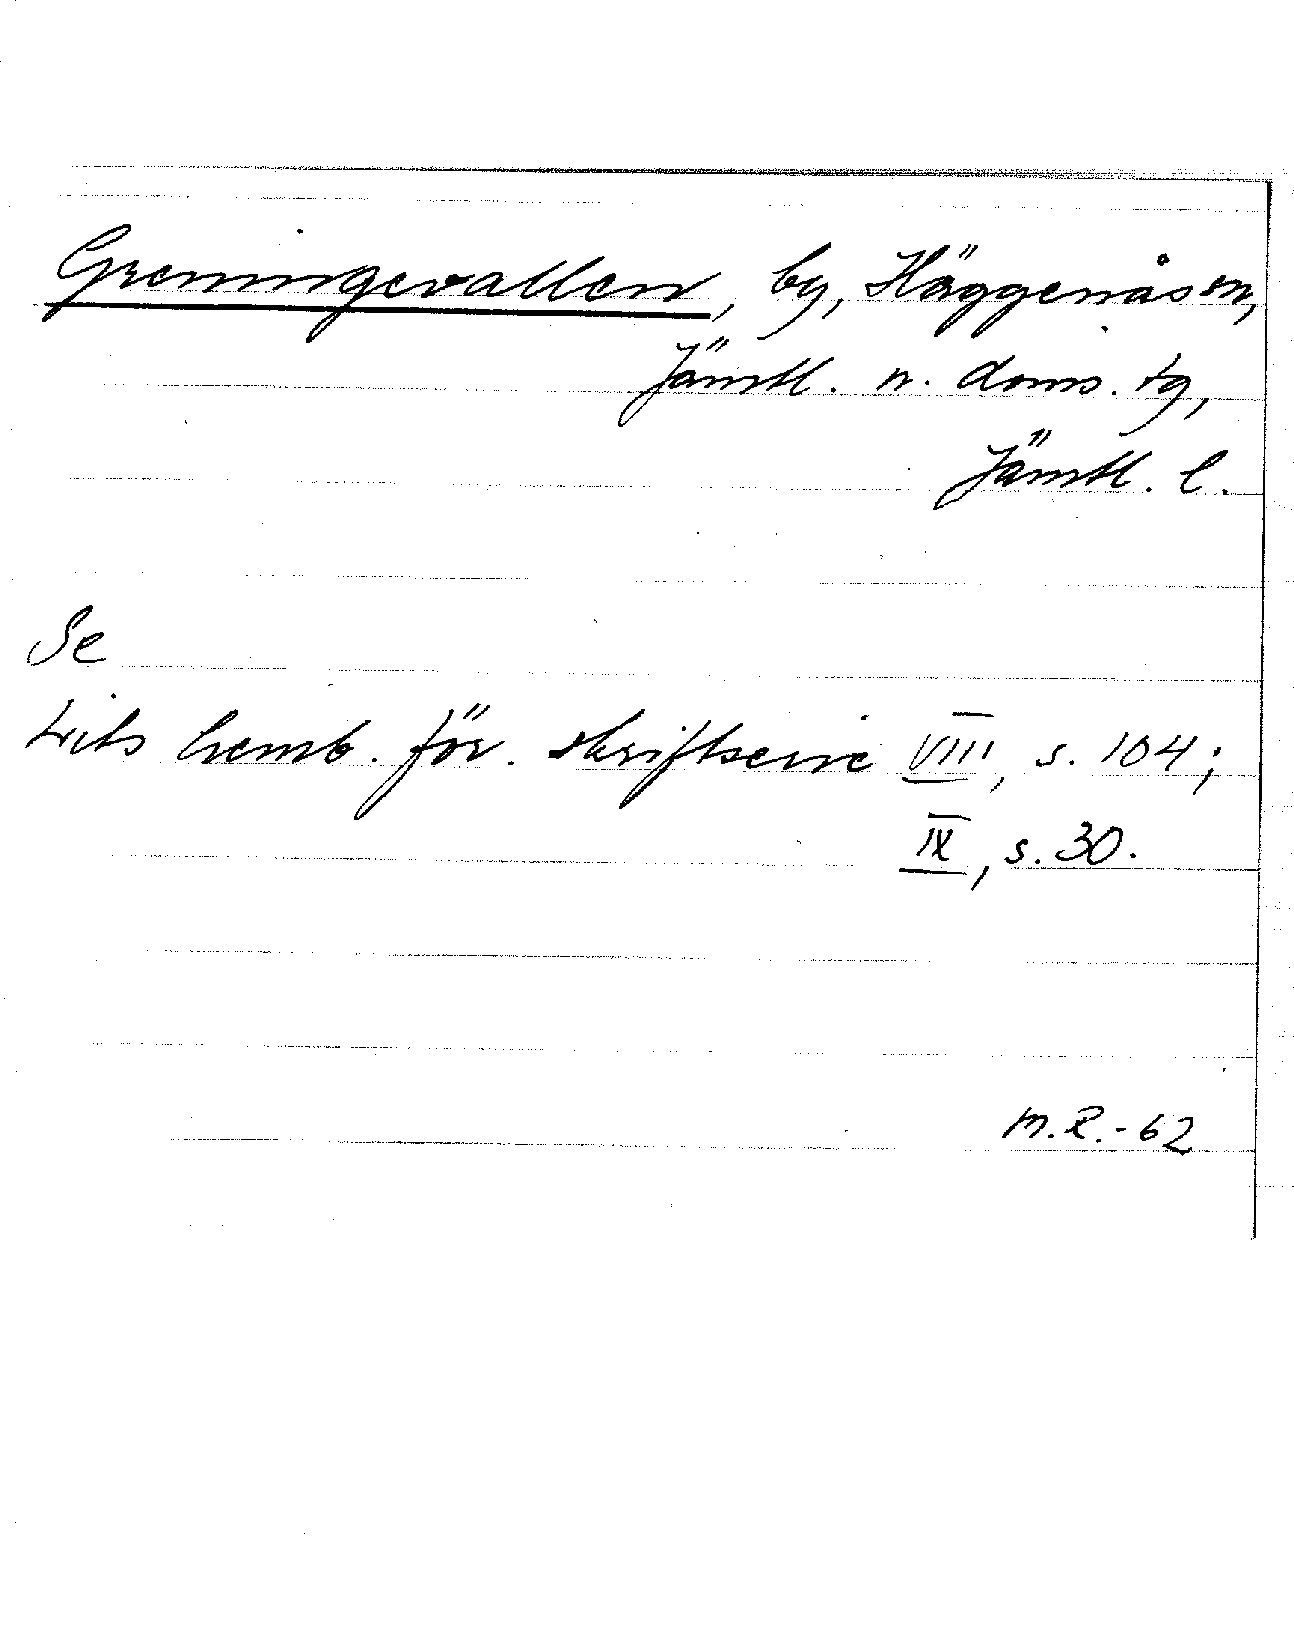 Greningevallen, by, Häggenås sn,
Jämtl. n. doms. tg,
Jämtl. l.
Se
Lits hemb. för. skriftserie VIII, s. 104;
IX, s. 30.
M.R.-62